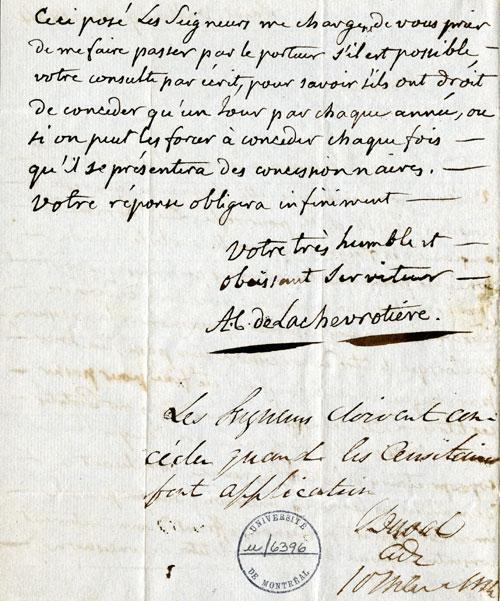 Ceci posé Les Seigneurs me chargent de vous prier
de me faire passer par le porteur s'il est possible —
votre consulte par écrit, pour savoir s'ils ont droit
de conceder qu'un Jour par chaque année, ou
si on peut les forcer à conceder chaque fois —
qu'il se présentera des concessionnaires. —
Votre réponse obligera infiniment —
Votre très humble et —
obeissant Serviteur —
A.C. de Lachevrotière.
Les Seigneurs doivent con-
céder quand les Censitaires
font application
UNIVERSITÉ
u/6396
DE MONTRÉAL
10